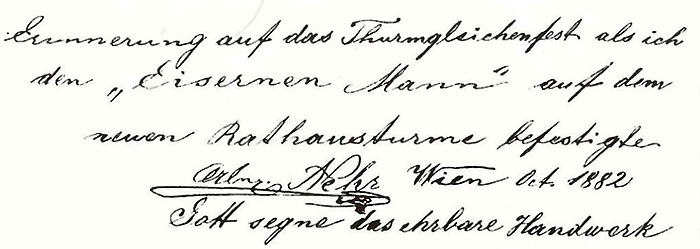 Erinnerung auf das Thurmgleichenfest als ich
den „Eisernen Mann" auf dem
neuen Rathausturme befestigte
Nehr Wien Oct. 1882
Gott segne das ehrbare Handwerk